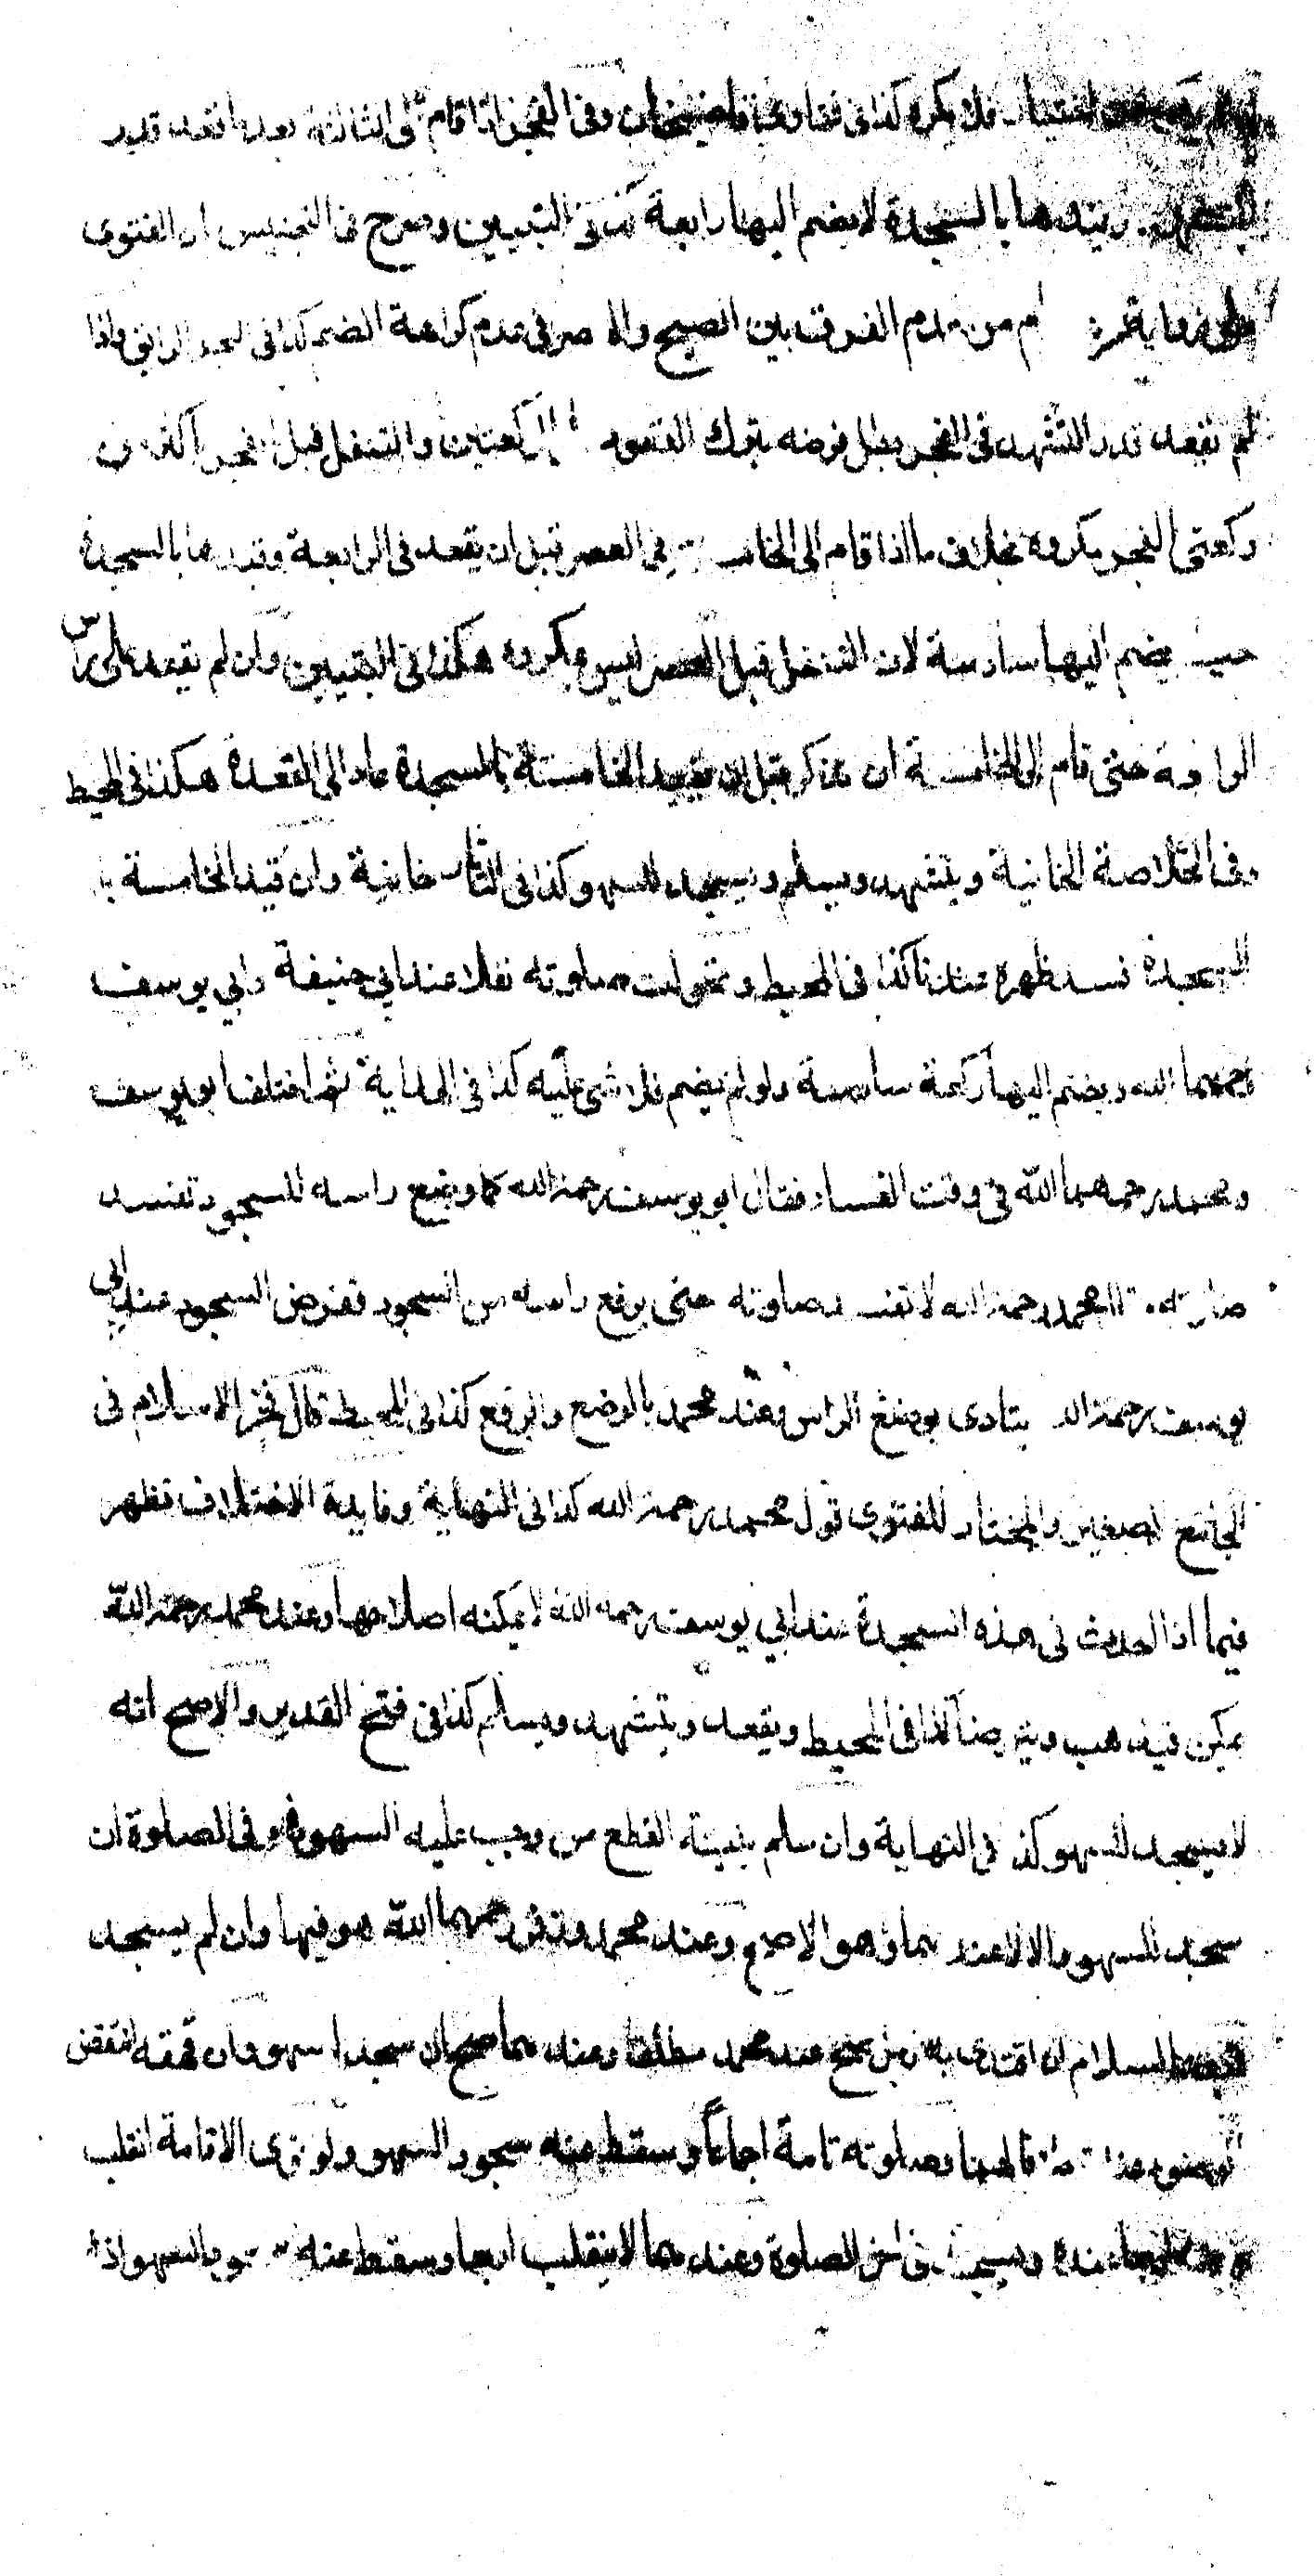 اختيار فلا يكره كذا في فتاوى قاضيخان وفي الفجر اذا قام الى الثالثة بعد ما قعد قدر
التشهد وقيدها بالسجدة لا يضم اليها رابعة كذا في التبيين وصرح في التجنيس ان الفتوى
على رواية من عدم الفرق بين الصبح والعصر في عدم كراهة الضم كذا في البحر الرائق واذا
لم يقعد قدر التشهد في الفجر بطل فرضه بترك القعود الركعتين والتنفل قبل الفجر اكثر من
ركعتي الفجر مكروه بخلاف ما اذا قام الى الخامسة في العصر قبل ان يقعد في الرابعة وقيدها بالسجدة
حيث يضم اليها سادسة لان التنفل قبل العصر ليس بمكروه هكذا في التبيين وان لم يقعد على راس
الرابعة حتى قام الى الخامسة ان تذكر قبل ان يقيد الخامسة بالسجدة عاد الى القعدة هكذا في المحيط
وفي الخلاصة الخانية ويتشهد ويسلم ويسجد للسهو كذا في التتارخانية وان قيد الخامسة با
السجدة فسد ظهره عندنا كذا في المحيط وتحولت صلوته نفلا عند ابي حنيفة وابي يوسف
رحمهما الله ويضم اليها ركعة سادسة ولو لم يضم فلا شئ عليه كذا في الهداية ثم اختلف ابو يوسف
ومحمد رحمهما الله في وقت الفساد فقال ابو يوسف رحمه الله كما وضع راسه للسجود تفسد
صلوته وقال محمد رحمه الله لا تفسد صلوته حتى يرفع راسه من السجود ففرض السجود عند ابي
يوسف رحمه الله يتادى بوضع الراس وعند محمد بالوضع والرفع كذا في المحيط قال فخر الاسلام في
الجامع الصغير والمختار للفتوى قول محمد رحمه الله كذا في النهاية وفايدة الاختلاف تظهر
فيما اذا احدث في هذه السجدة عند ابي يوسف رحمه الله لا يمكنه اصلاحها وعند محمد رحمه الله
يمكن فيذهب ويتوضأ كذا في المحيط ويقعد ويتشهد ويسلم كذا في فتح القدير والاصح انه
لا يسجد للسهو كذا في النهاية وان سلم بنية القطع من وجب عليه السهو فهو في الصلوة ان
سجد للسهو والا لا عندهما وهو الاصح وعند محمد وزفر رحمهما الله هو فيها وان لم يسجد
فبعد السلام ان اقتدى به رجل صح عند محمد مطلقا وعندهما صح ان سجد للسهو وان قهقه انتقض
الوضوء عنده خلافا لهما وصلوته تامة اجماعا وسقط عنه سجود السهو ولو نوى الاقامة انقلب
فرضه اربعا عنده ويسجد في اخر الصلوة وعندهما لا ينقلب اربعا وسقط عنه سجود السهو اذا